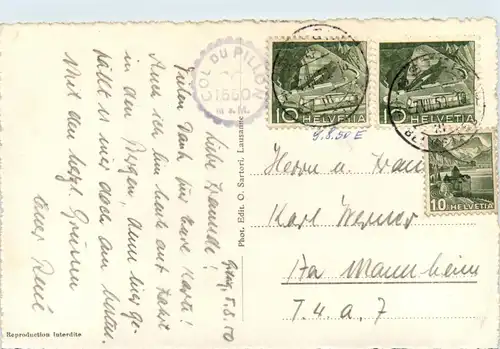 COL DU PILLON
1550
m s. M.
10 HELVETIA
10 HELVETIA
10 HELVETIA
9.8.50 E
5.8.50
Liebe Freunde!
Vielen Dank für Eure Karte!
Auch ich bin heute auf Fahrt
in den Bergen, denn hier ge-
fällt es mir doch am besten.
Mit den herzl. Grüssen
Euer René
Phot. Edit. O. Sartori, Lausanne
Herrn u. Frau
Karl Werner
17a Mannheim
T. 4. a. 7
Reproduction Interdite